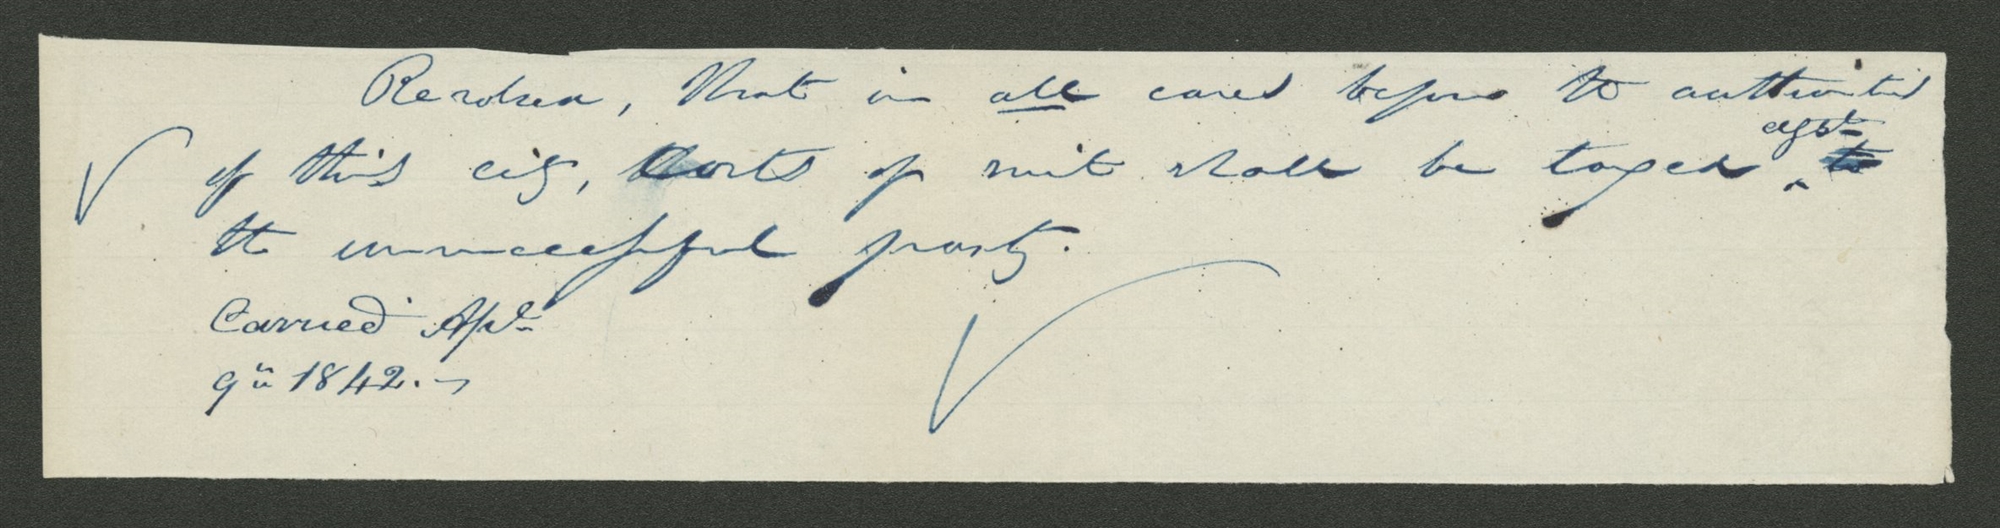 Resolved, that in all cases before the authorities
of this city, costs of suit shall be taxed agst to
the unsuccessful party.
Carried Apl
9th 1842.